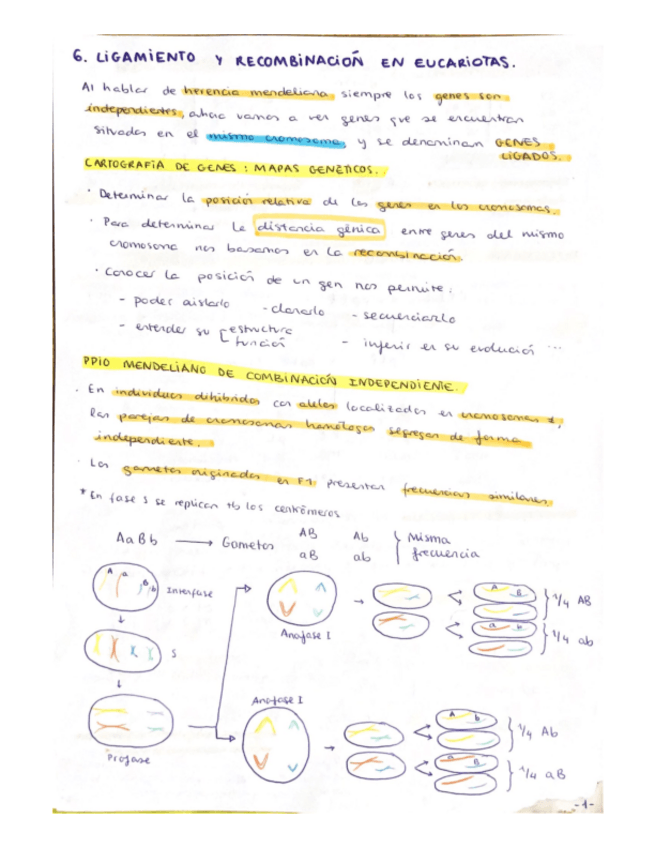 6. LIGAMIENTO Y RECOMBINACIOÓN EN EUCARIOTAS.
Al hablar de herencia mendeliana siempre los genes son
independientes, ahora vamos a ver genes que se encuentran
situados en el mismo cromosoma, y se denominan GENES
LIGADOS.
CARTOGRAFÍA DE GENES: MAPAS GENÉTICOS.
· Determinar la posición relativa de los genes en los cromosomas.
· Para determinar la distancia génica entre genes del mismo
cromosoma nos basamos en la recombinación.
· Conocer la posición de un gen nos permite:
- poder aislarlo - clonarlo - secuenciarlo
- entender su [ estructura
función - inferir en su evolución ...
PPIO MENDELIANO DE COMBINACIÓN INDEPENDIENTE.
· En individuos dihíbridos con alelos localizados en cromosomas ≠,
las parejas de cromosomas homólogos segregan de forma
independiente.
· Los gametos originados en F1 presentan frecuencias similares.
* En fase S se replican tb los centrómeros
AaBb → Gametos AB Ab } Misma
aB ab frecuencia
A a B b Interfase
S
Profase
Anafase I
A B
a b
1/4 AB
1/4 ab
Anafase I
A b
a B
1/4 Ab
1/4 aB
-1-